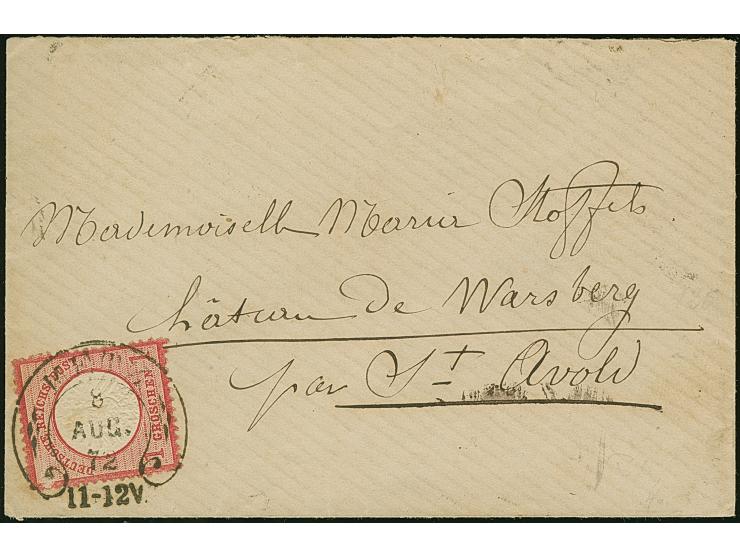 Mademoiselle Maria Stoffels.
château de Warsberg
par St Avold
8
AUG.
72
11-12V.
DEUTSCHE REICHS-POST
1 GROSCHEN 1